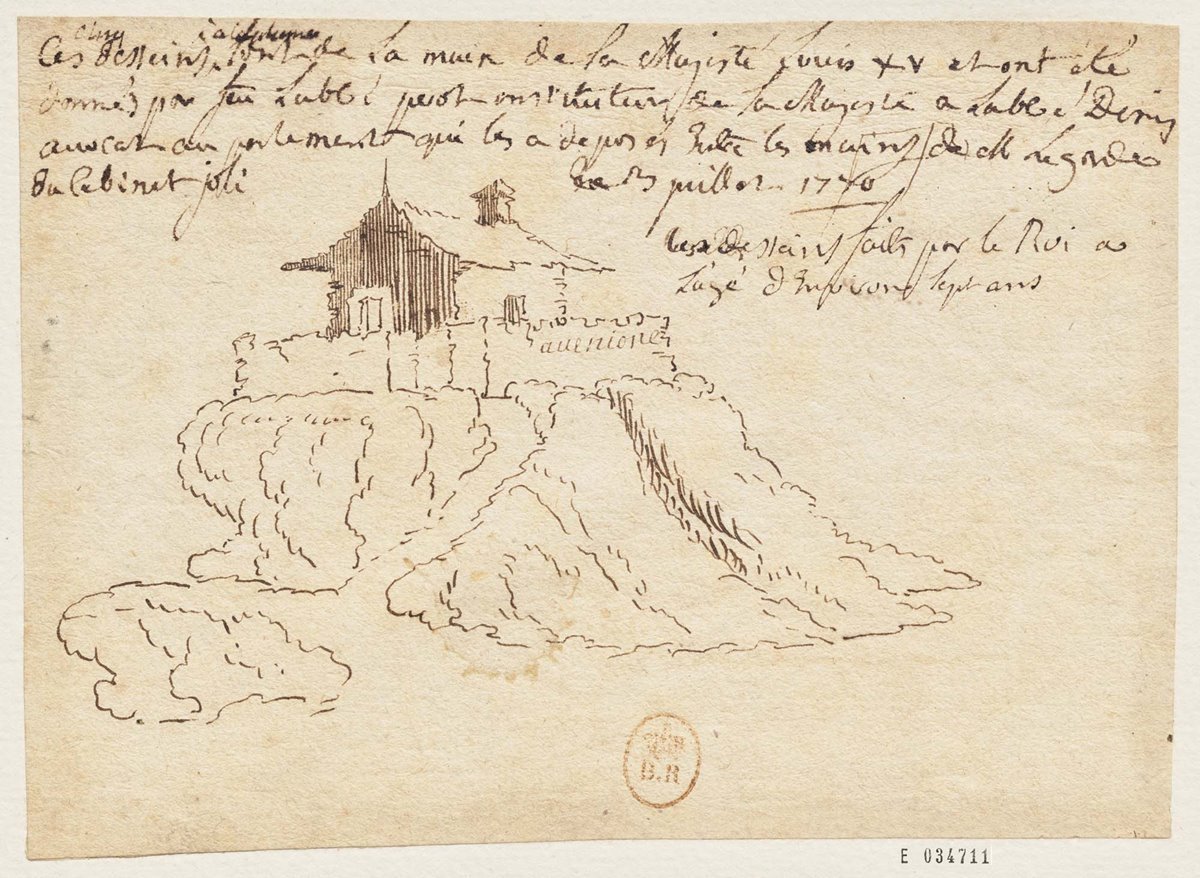 cinq
Ces desseins sont de La main de Sa Majesté Louis XV et ont été
donnés par feu Labbé perot instituteur de Sa Majesté a Labbé
avocat au parlement qui les a deposés Entre les mains de M Le garde
du Cabinet 23 juillet 1770
Les desseins faits par le Roi a
L'agé d'Environ Sept ans
avenione
B.R
E 034711